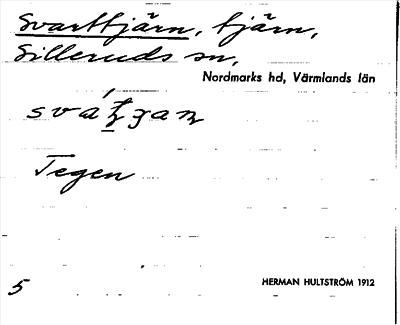 Svarttjärn, tjärn,
Silleruds sn,
Nordmarks hd, Värmlands län
Tegen
5 HERMAN HULTSTRÖM 1912